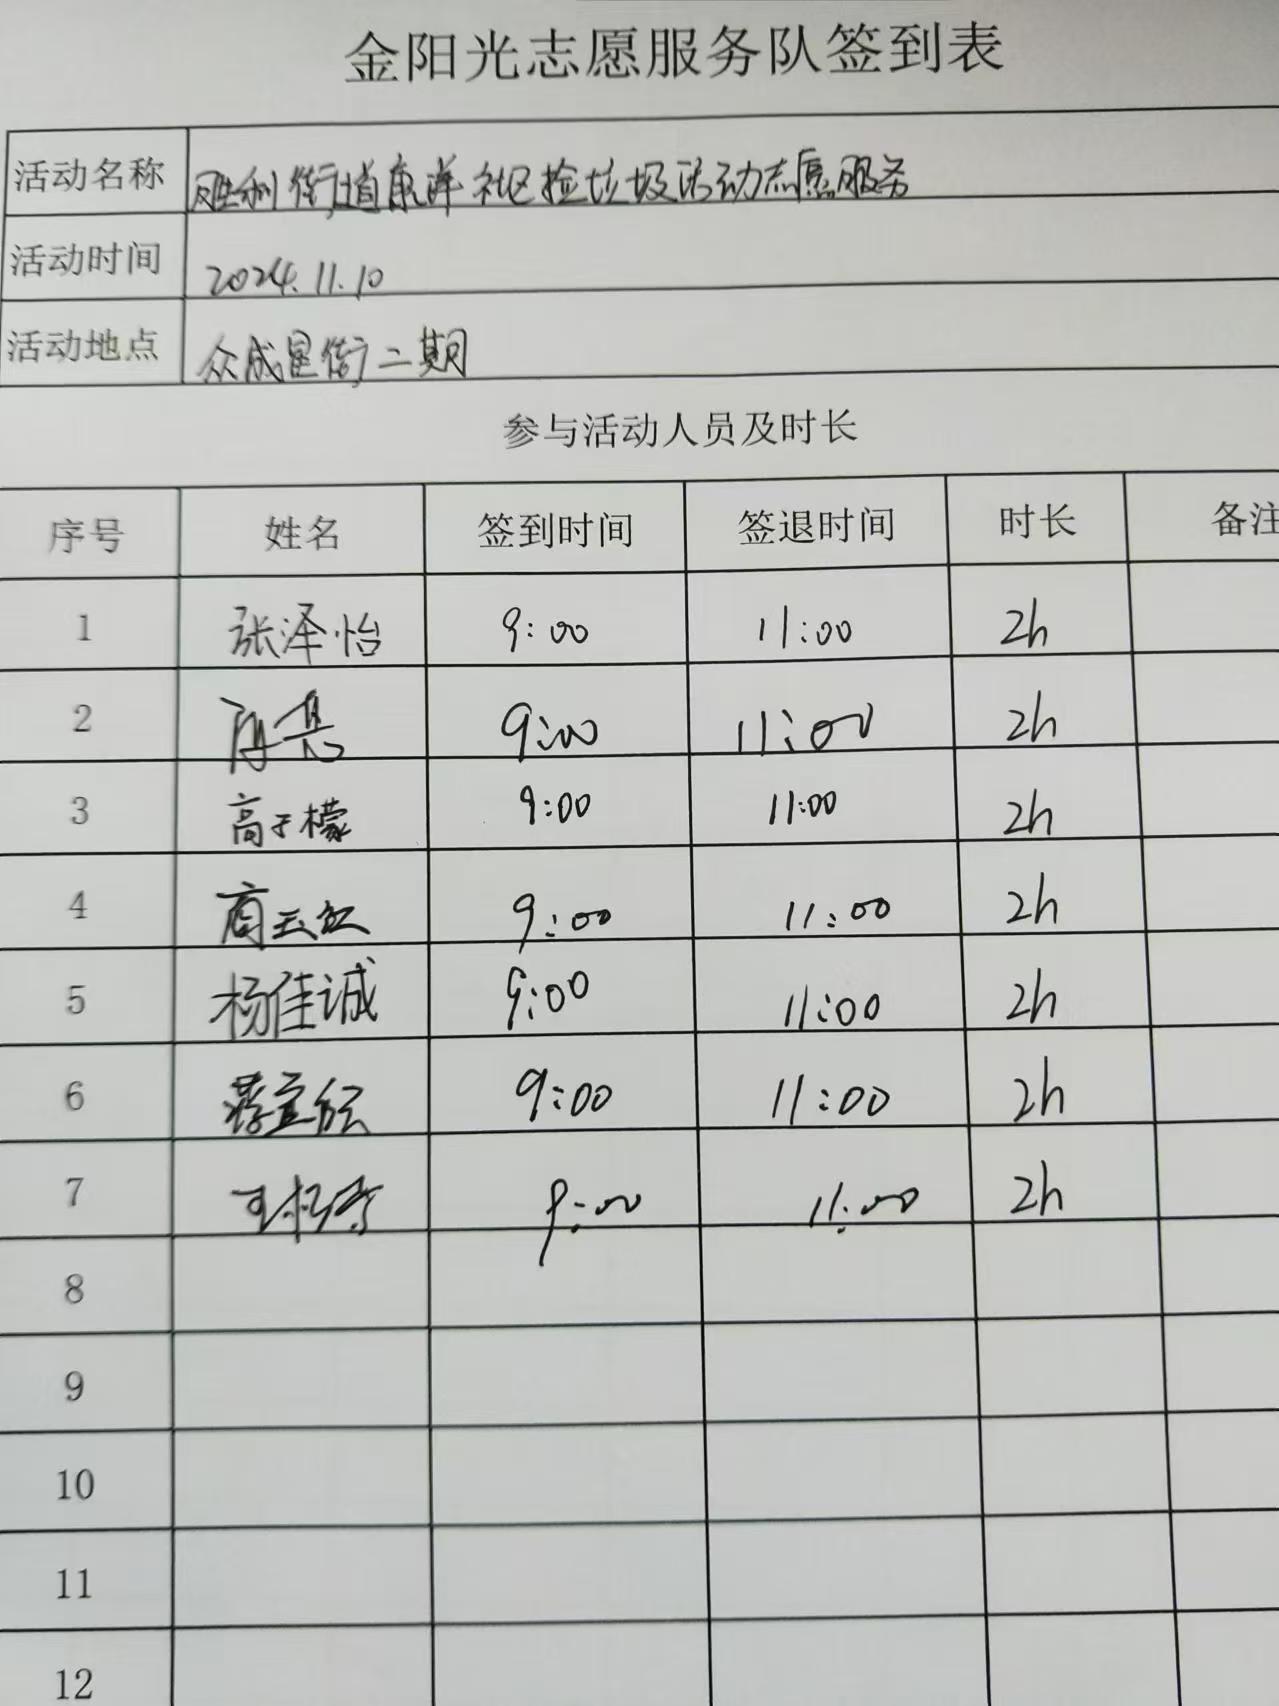 金阳光志愿服务队签到表
活动名称 胜利街道康洋社区捡垃圾活动志愿服务
活动时间 2024.11.10
活动地点 众成星街二期
参与活动人员及时长
序号 姓名 签到时间 签退时间 时长 备注
1 张泽怡 9:00 11:00 2h
2 9:00 11:00 2h
3 高于檬 9:00 11:00 2h
4 商玉红 9:00 11:00 2h
5 杨佳诚 9:00 11:00 2h
6 9:00 11:00 2h
7 9:00 11:00 2h
8
9
10
11
12